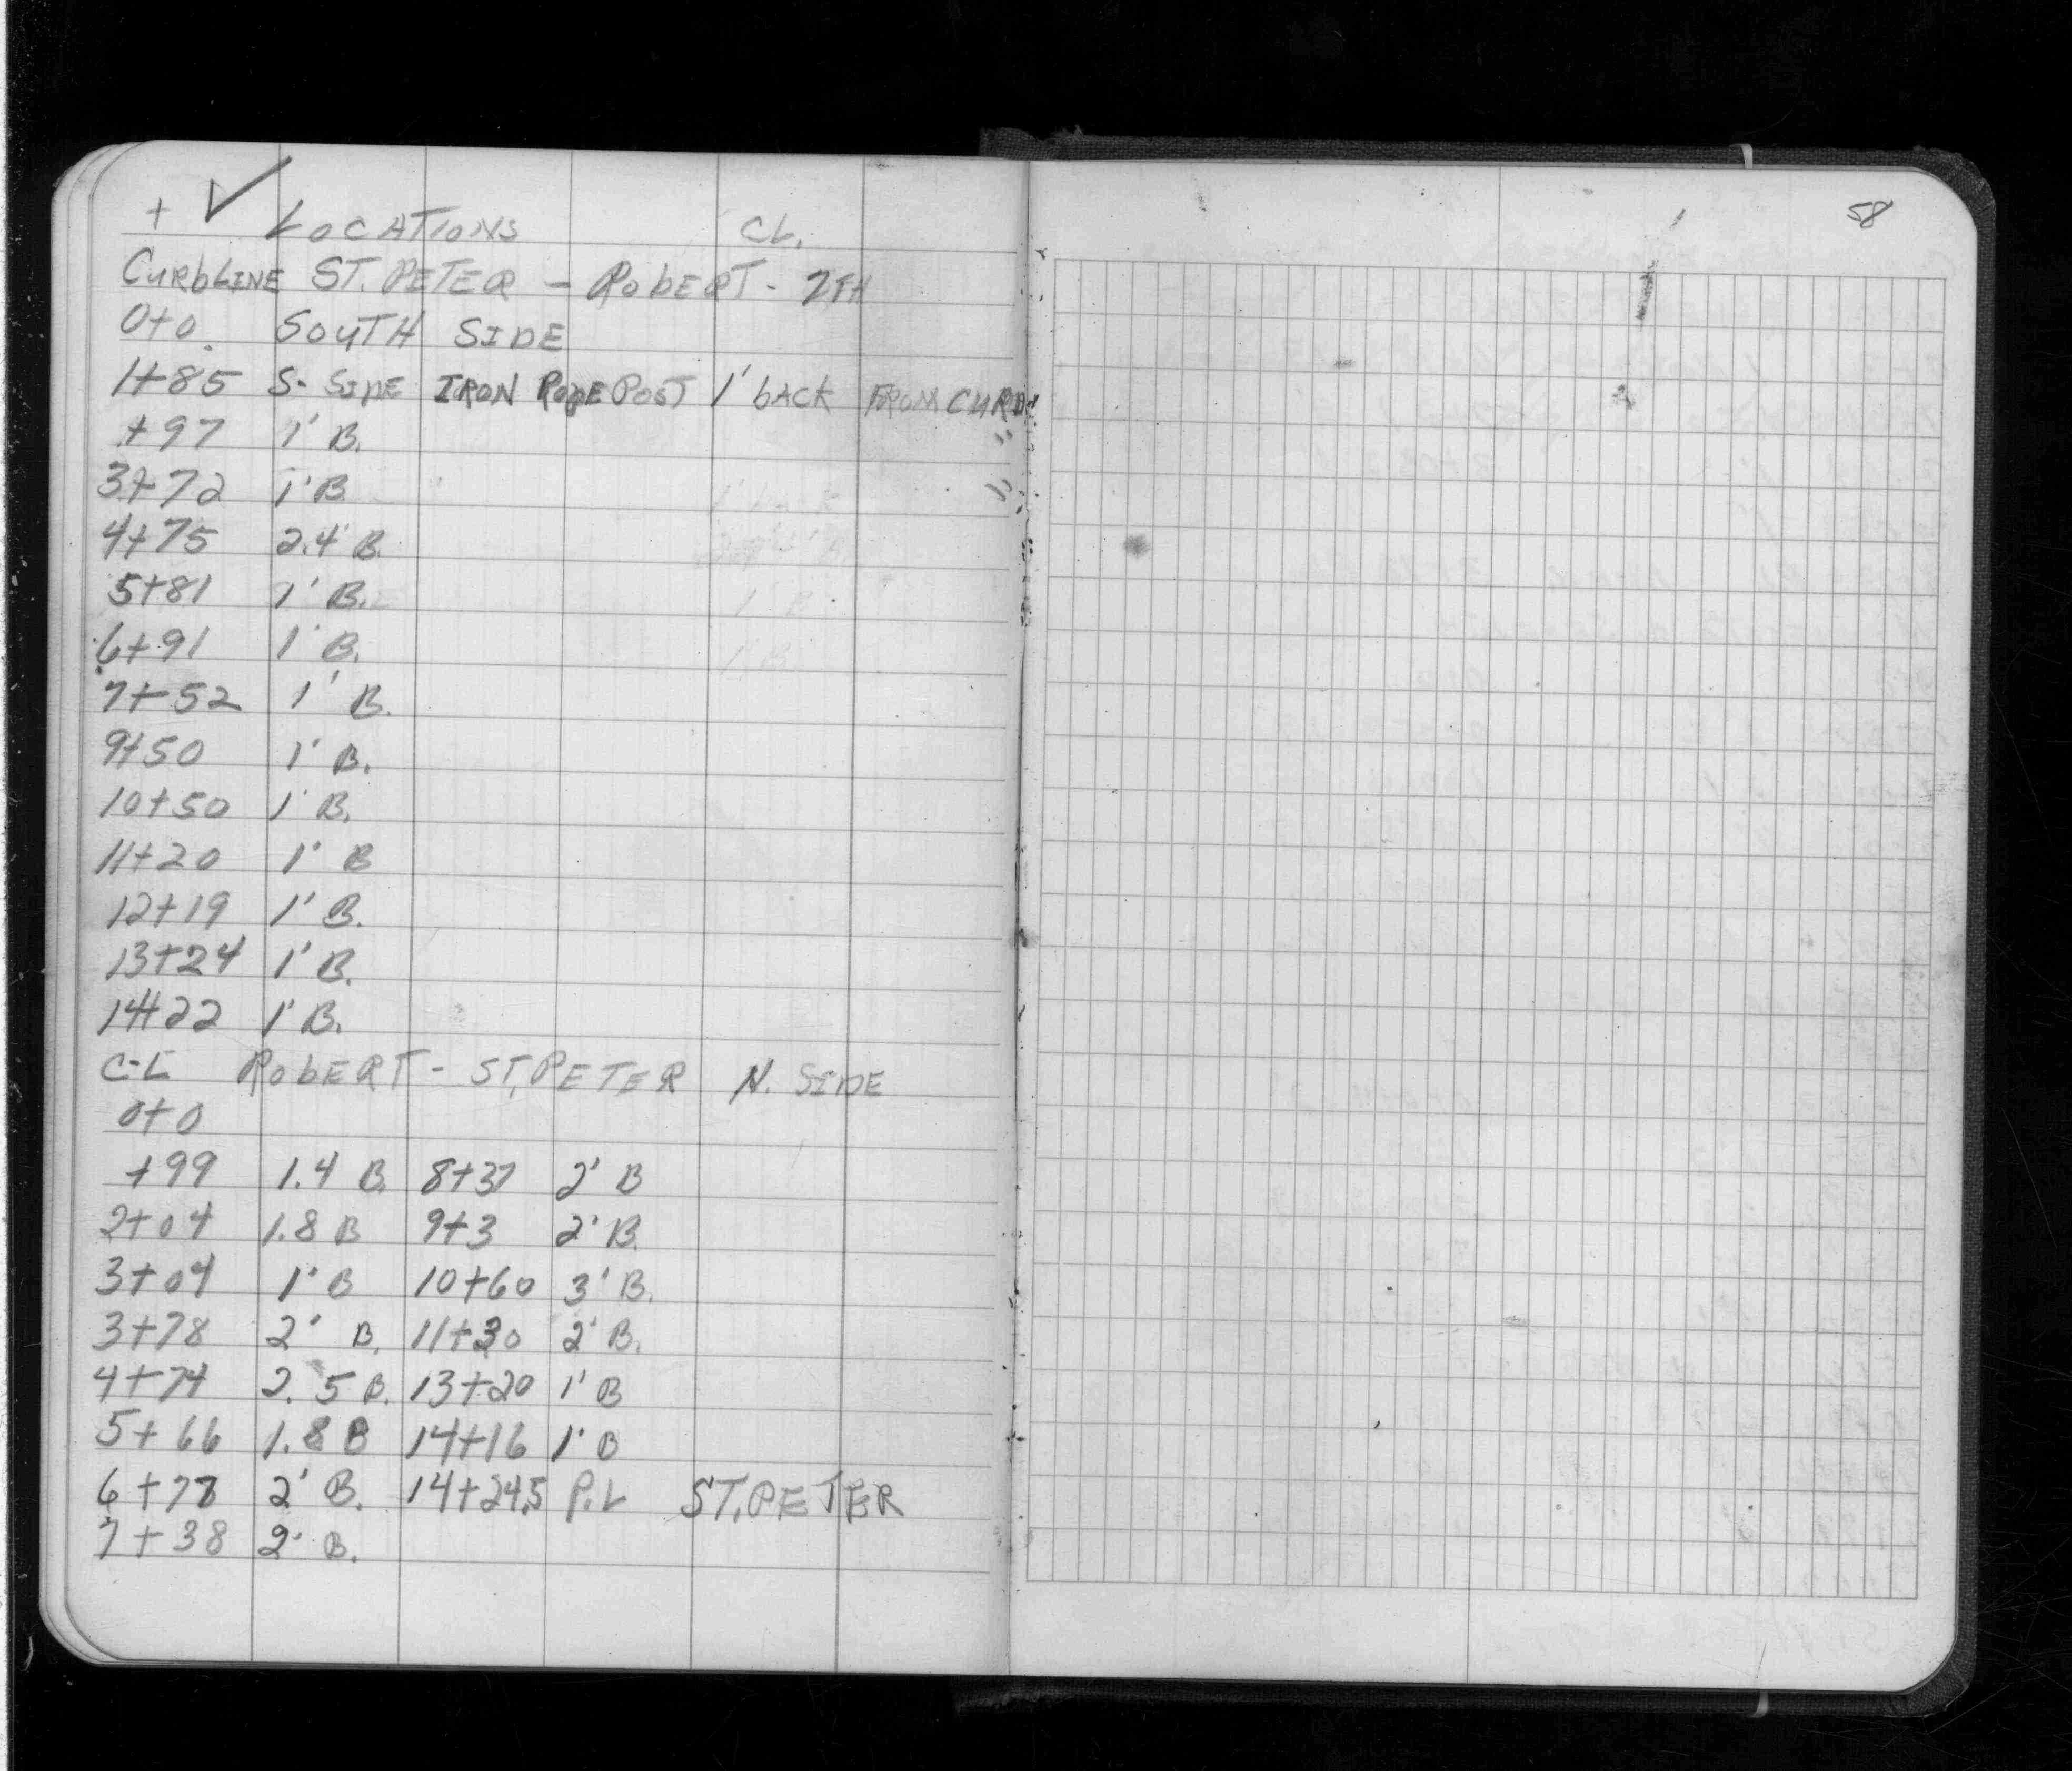 + ✓ LOCATIONS CL.
CURBLINE ST. PETER - ROBERT - 7TH
0+0. SOUTH SIDE
1+85 S- SIDE IRON ROPE POST 1' BACK FROM CURB
+97 1' B. "
3+72 1' B "
4+75 2.4' B.
5+81 1' B.
6+91 1' B.
7+52 1' B.
9+50 1' B.
10+50 1' B.
11+20 1' B
12+19 1' B.
13+24 1' B.
14+22 1' B.
C-L ROBERT - ST. PETER N. SIDE
0+0
+99 1.4 B. 8+37 2' B
2+04 1.8 B 9+3 2' B.
3+04 1' B 10+60 3' B.
3+78 2' B. 11+30 2' B.
4+74 2.5 B. 13+20 1' B
5+66 1.8 B 14+16 1' B
6+78 2' B. 14+24.5 P.L ST. PETER
7+38 2' B.
58